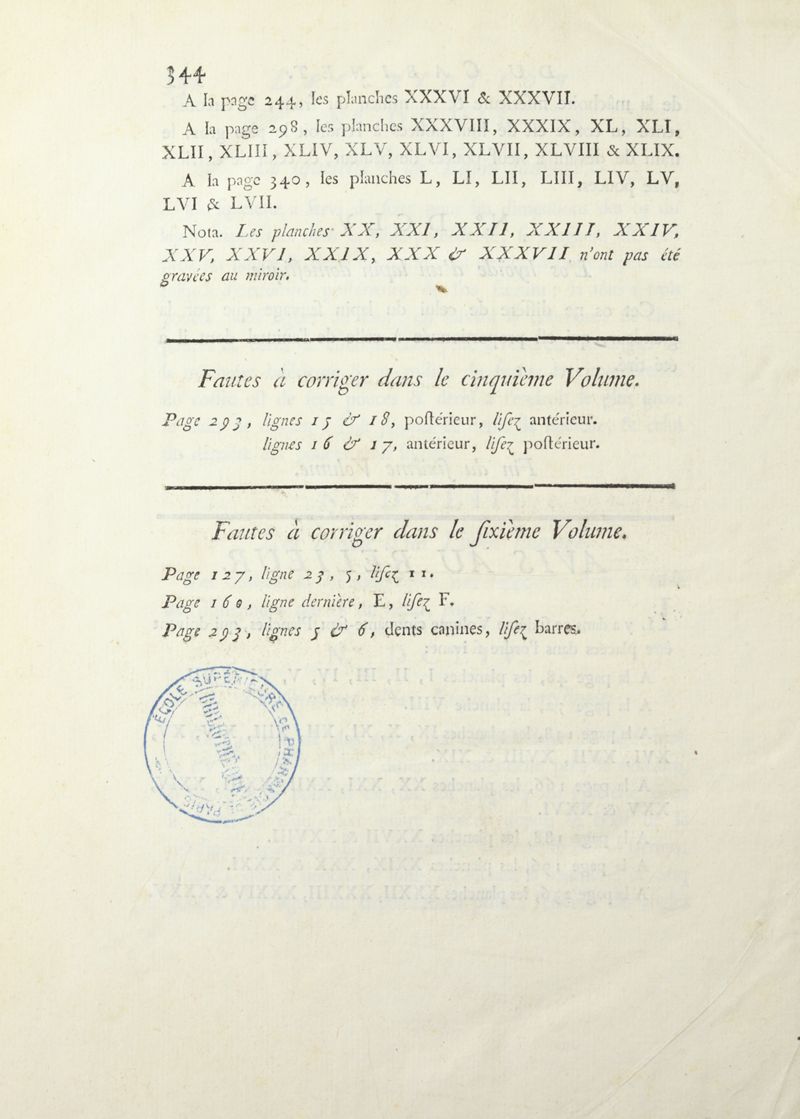 344
A la page 244, les planches XXXVI & XXXVII.
A la page 298, les planches XXXVIII, XXXIX, XL, XLI,
XLII, XLIII, XLIV, XLV, XLVI, XLVII, XLVIII & XLIX.
A la page 340, les planches L, LI, LII, LIII, LIV, LV,
LVI & LVII.
Nota. Les planches XX, XXI, XXII, XXIII, XXIV,
XXV, XXVI, XXIX, XXX & XXXVII n'ont pas été
gravées au miroir.
Fautes à corriger dans le cinquième Volume.
Page 293, lignes 15 & 18, poſtérieur, liſez antérieur.
lignes 16 & 17, antérieur, liſez poſtérieur.
Fautes à corriger dans le ſixième Volume.
Page 127, ligne 23, 5, liſez 11.
Page 160, ligne dernière, E, liſez F.
Page 293, lignes 5 & 6, dents canines, liſez barres.
ÉCOLE SUPÉRIEURE DE PHARMACIE
PARIS